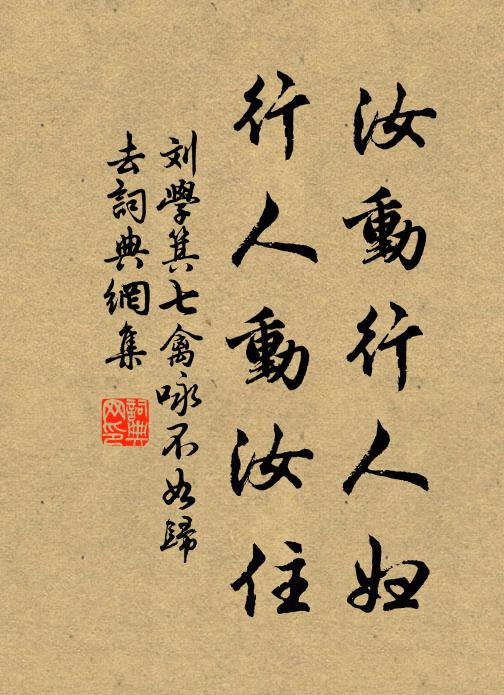 汝動行人妇
行人動汝住
刘學箕七禽咏不如歸
去詞典網集
詞典
网印